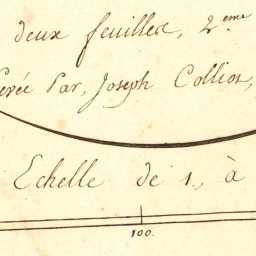 deux feuilles, 2.eme
Levée Par, Joseph Colliot,
Echelle de 1, à
100.